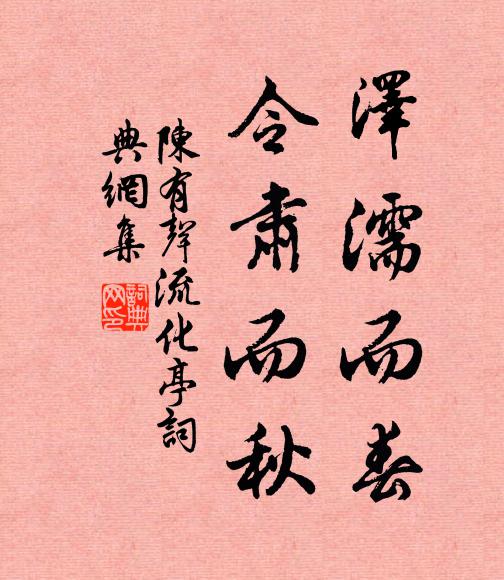 澤濡而春
令肅而秋
陳有聲流化亭詞
典網集
詞典網印